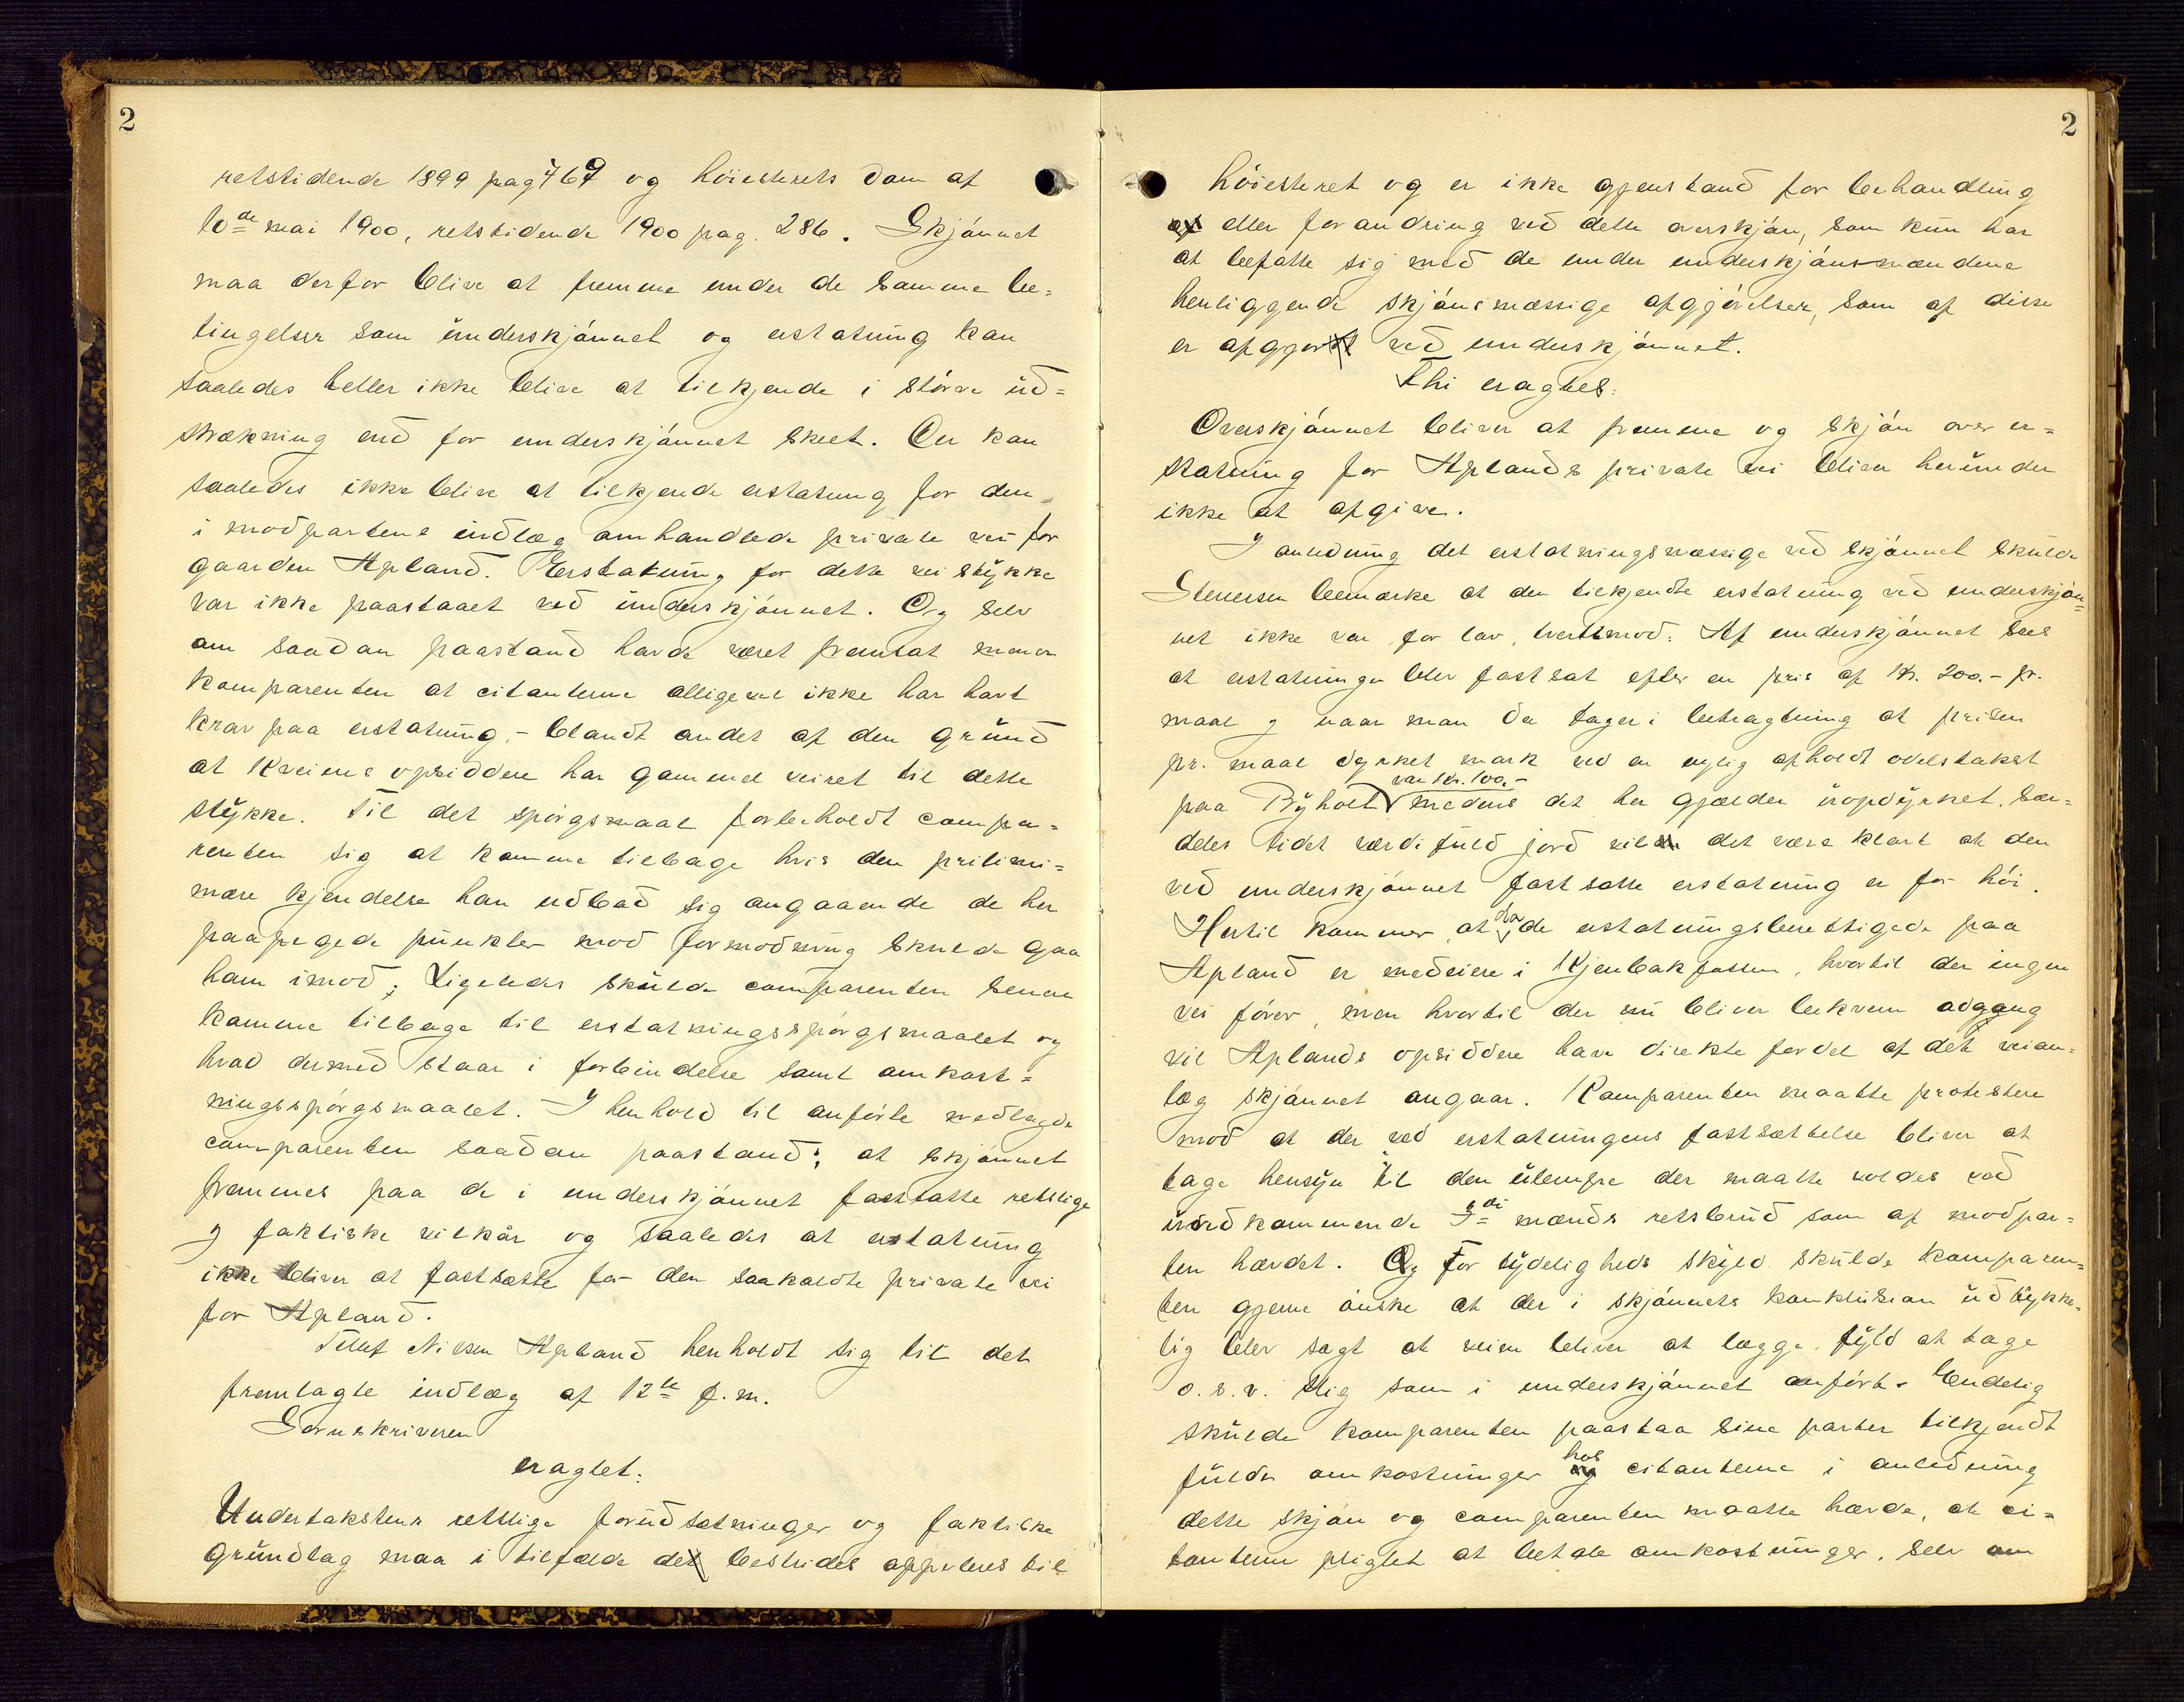 2
retstidende 1899 pag 769 og höiesterets dom af
10de mai 1900, retstidende 1900 pag. 286. Skjönnet
maa derfor blive at fremme under de samme be=
tingelser som underskjönnet og erstatning kan
saaledes heller ikke blive at tilkjende i större ud=
strækning end for underskjönnet skeet. Der kan
saaledes ikke blive at tilkjende erstatning for den
i modpartens indlæg omhandlede private vei for
gaarden Apland. Erstatning for dette veistykke
var ikke paastaaet ved underskjönnet. Og selv
om saadan paastand havde været fremsat mener
komparenten at citanterne alligevel ikke har havt
krav paa erstatning, - blandt andet af den grund
at Kveims opsiddere har gammel veiret til dette
stykke. Til det spörgsmaal forbeholdt compa=
renten sig at komme tilbage hvis den prilimi=
nære kjendelse han udbad sig angaaende de her
paapegede punkter mod formodning skulde gaa
ham imod; Ligeledes skulde comparenten senere
komme tilbage til erstatningsspörgsmaalet og
hvad dermed staar i forbindelse samt omkost=
ningsspörgsmaalet. I henhold til anförte nedlagde
comparenten saadan paastand: at skjönnet
fremmes paa de i underskjönnet fastsatte retslige
og faktiske vilkår og saaledes at erstatning
ikke bliver at fastsætte for den saakaldte private vei
for Apland.
Tellef Nilsen Apland henholdt sig til det
fremlagte indlæg af 12te f.m.
Sorenskriveren
eragtet:
Undertakstens retslige forudsætninger og faktiske
grundlag maa i tilfælde det bestrides appeleres til
2
höiesteret og er ikke gjenstand for behandling
af eller forandring ved dette overskjön, som kun har
at befatte sig med de under underskjönsmændene
henliggende skjönsmæssige afgjörelser, som af disse
er afgjort ved underskjönnet.
Thi eragtes:
Overskjönnet bliver at fremme og skjön over er=
statning for Aplands private vei bliver herunder
ikke at afgive.
I anledning det erstatningsmæssige ved skjönnet skulde
Stenersen bemærke at den tilkjendte erstatning ved underskjön=
net ikke var for lav, tvertimod. Af underskjönnet sees
at erstatningen blev fastsat efter en pris af Kr. 200.- pr.
maal og naar man da tager i betragtning at prisen
pr. maal dyrket mark ved en nylig afholdt odelstakst
var kr. 100.-
paa Byholt medens det her gjælder uopdyrket, sær=
deles lidet værdifuld jord vil det være klart at den
ved underskjönnet fastsatte erstatning er for höi.
Hertil kommer, at da de erstatningsberettigede paa
Apland er medeiere i Kjenbakfossen, hvortil der ingen
vei förer, men hvortil der nu bliver bekvem adgang
vil Aplands opsiddere have direkte fordel af det veian=
læg skjönnet angaar. Komparenten maatte protestere
mod at der ved erstatningens fastsættelse bliver at
tage hensyn til den ulempe der maatte voldes ved
uvedkommende 3die mænds retsbrud som af modpar=
ten hævdet. Og For tydeligheds skyld skulde komparen=
ten gjerne önske at der i skjönnets konklusion udtrykke=
lig blev sagt at veien bliver at lægge, fyld at tage
o.s.v. slig som i underskjönnet anfört. Endelig
skulde komparenten paastaa sine parter tilkjendt
fulde omkostninger hos citanterne i anledning
dette skjön og comparenten maatte hævde, at ci=
tanterne pligtet at betale omkostninger, selv om